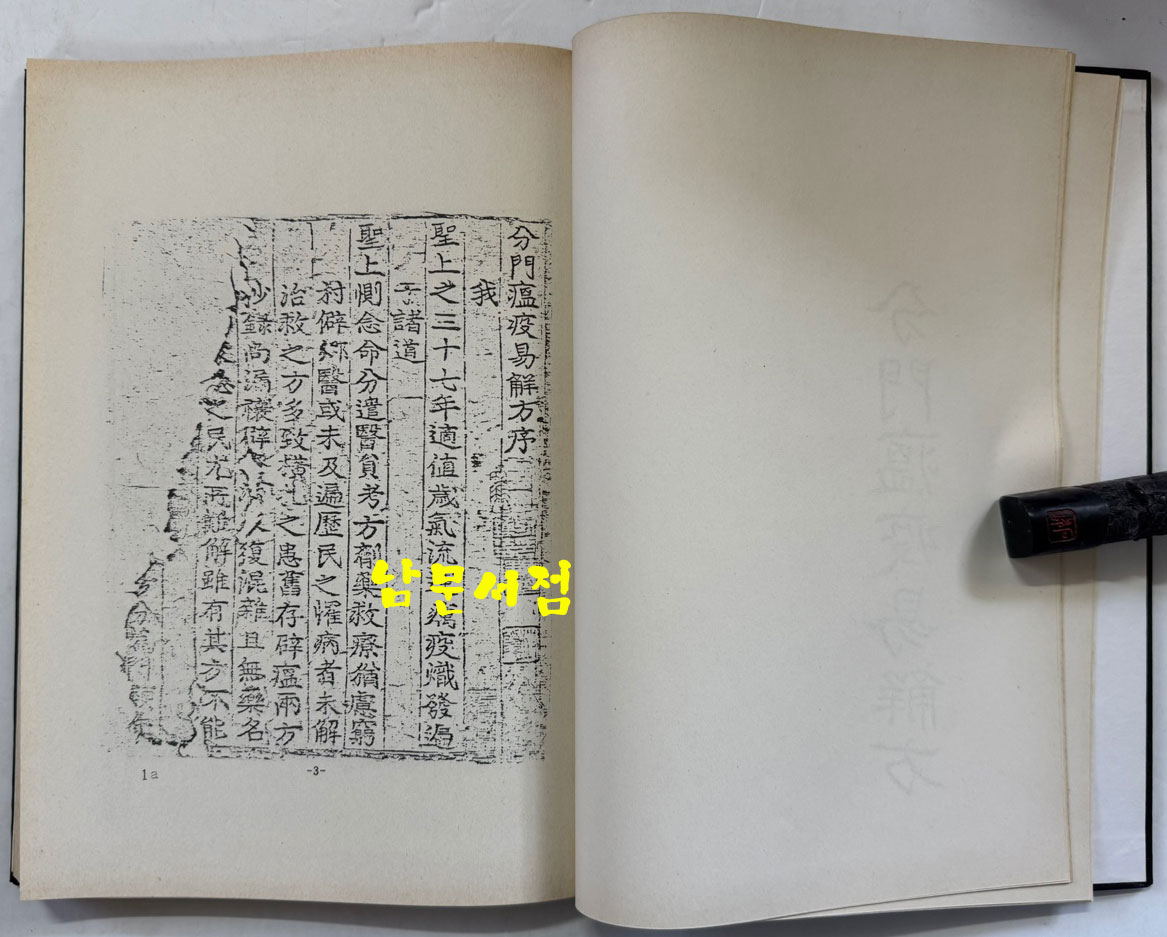 分門瘟疫易解方序
我
聖上之三十七年適値歲氣流 癘疫熾發遍
于諸道
聖上惻念命分遣醫員考方劑藥救療猶慮窮
村僻鄕醫或未及遍歷民之罹病者未解
治救之方多致橫札之患舊存辟瘟兩方
抄錄尙漏 辟 復混雜且無藥名
之民尤 難解雖有其方不能
分 門
1a
-3-
남문서점
分門瘟疫易解方